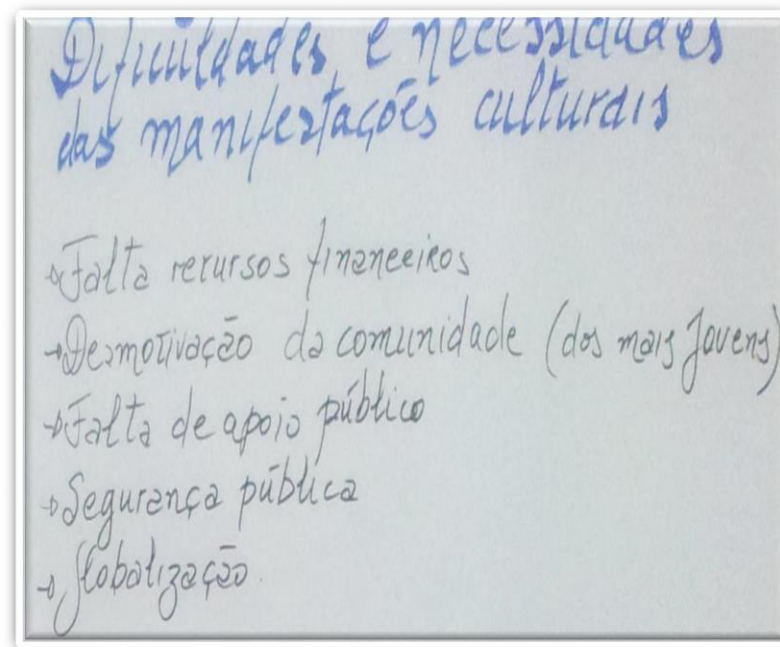 Dificuldades e necessidades
das manifestações culturais
→Falta recursos financeiros
→Desmotivação da comunidade (dos mais Jovens)
→Falta de apoio público
→Segurança pública
→Globalização.